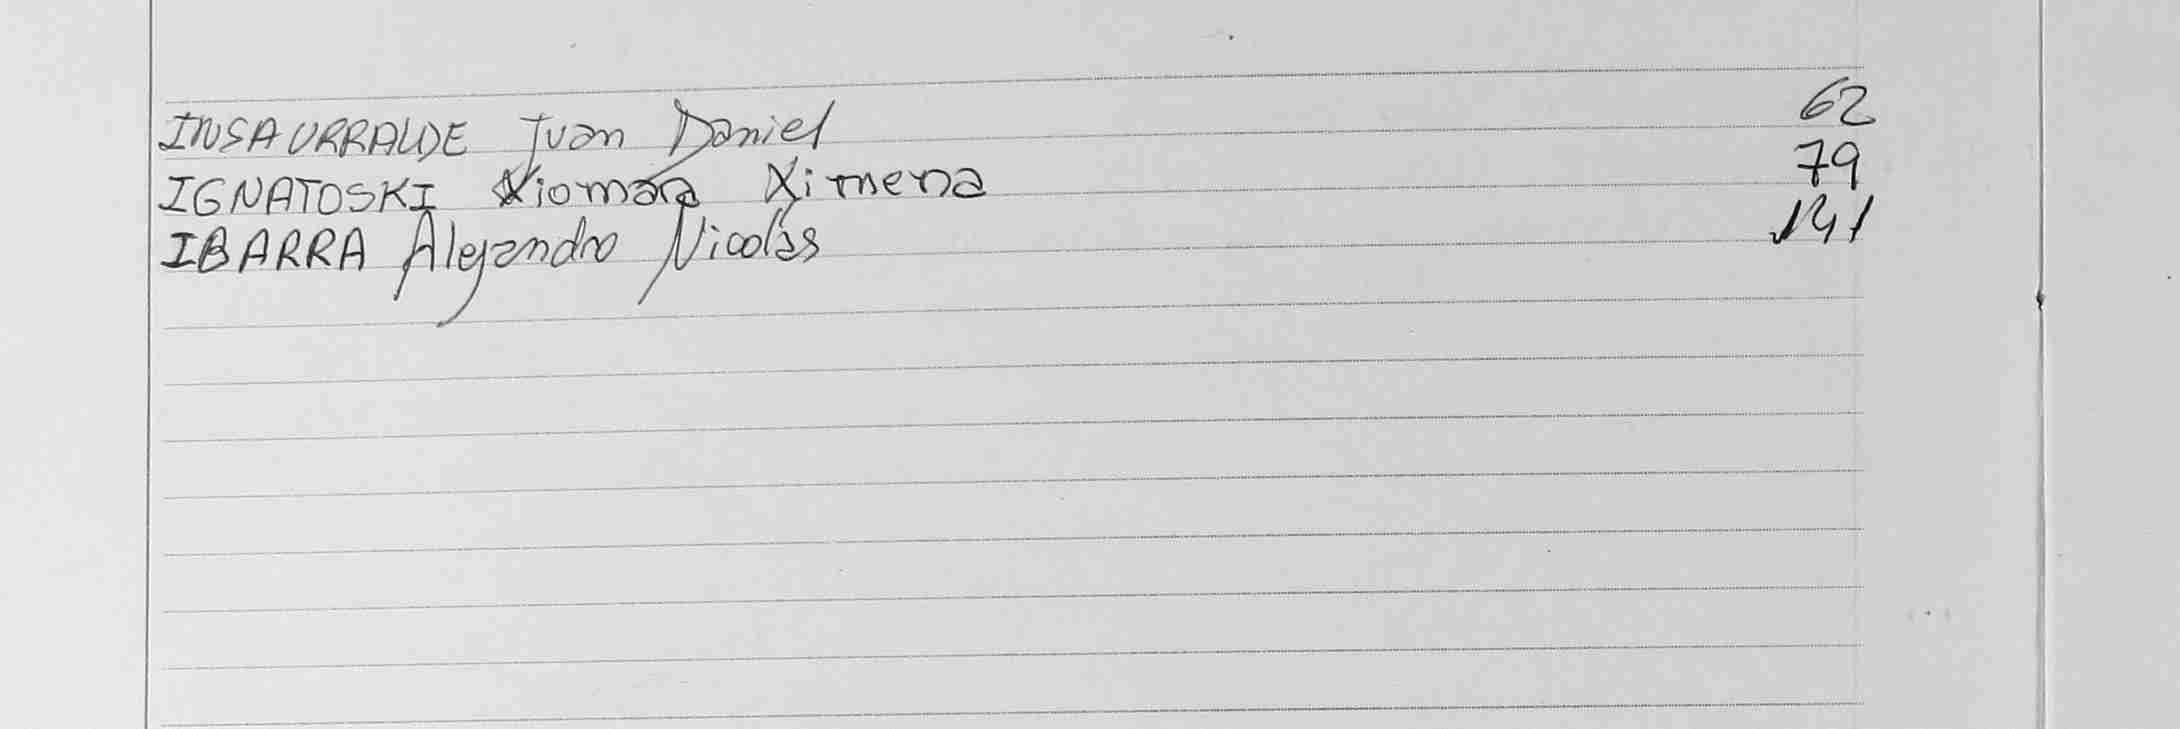 INSAURRALDE Juan Daniel 62
IGNATOSKI Xiomara Ximena 79
IBARRA Alejandro Nicolás 141